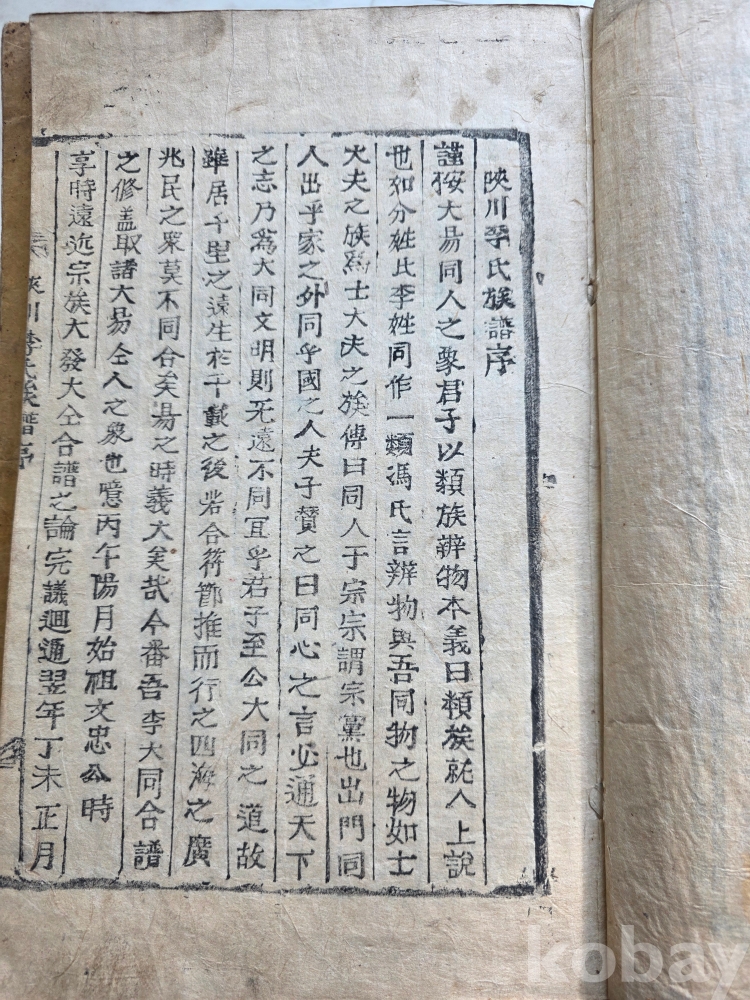 陜川李氏族譜序
謹按大昜同人之象君子以類族辨物本義曰類族就人上說
也如分姓比李姓同作一類馮氏言辨物與吾同物之物如士
大夫之族爲士大夫之族傳曰同人于宗宗謂宗黨也出門同
人出乎家之外同乎國之人夫子贊之曰同心之言必通天下
之志乃爲大同文明則无遠不同宜乎君子至公大同之道故
雖居千里之遠生於千載之後若合符節推而行之四海之廣
兆民之衆莫不同合矣昜之時義大矣哉今番吾李大同合譜
之修盖取諸大昜仝人之象也噫丙午陽月始祖文忠公時
享時遠近宗族大發大仝合譜之論完議廻通翌年丁未正月
陜川李氏族譜序
kobay